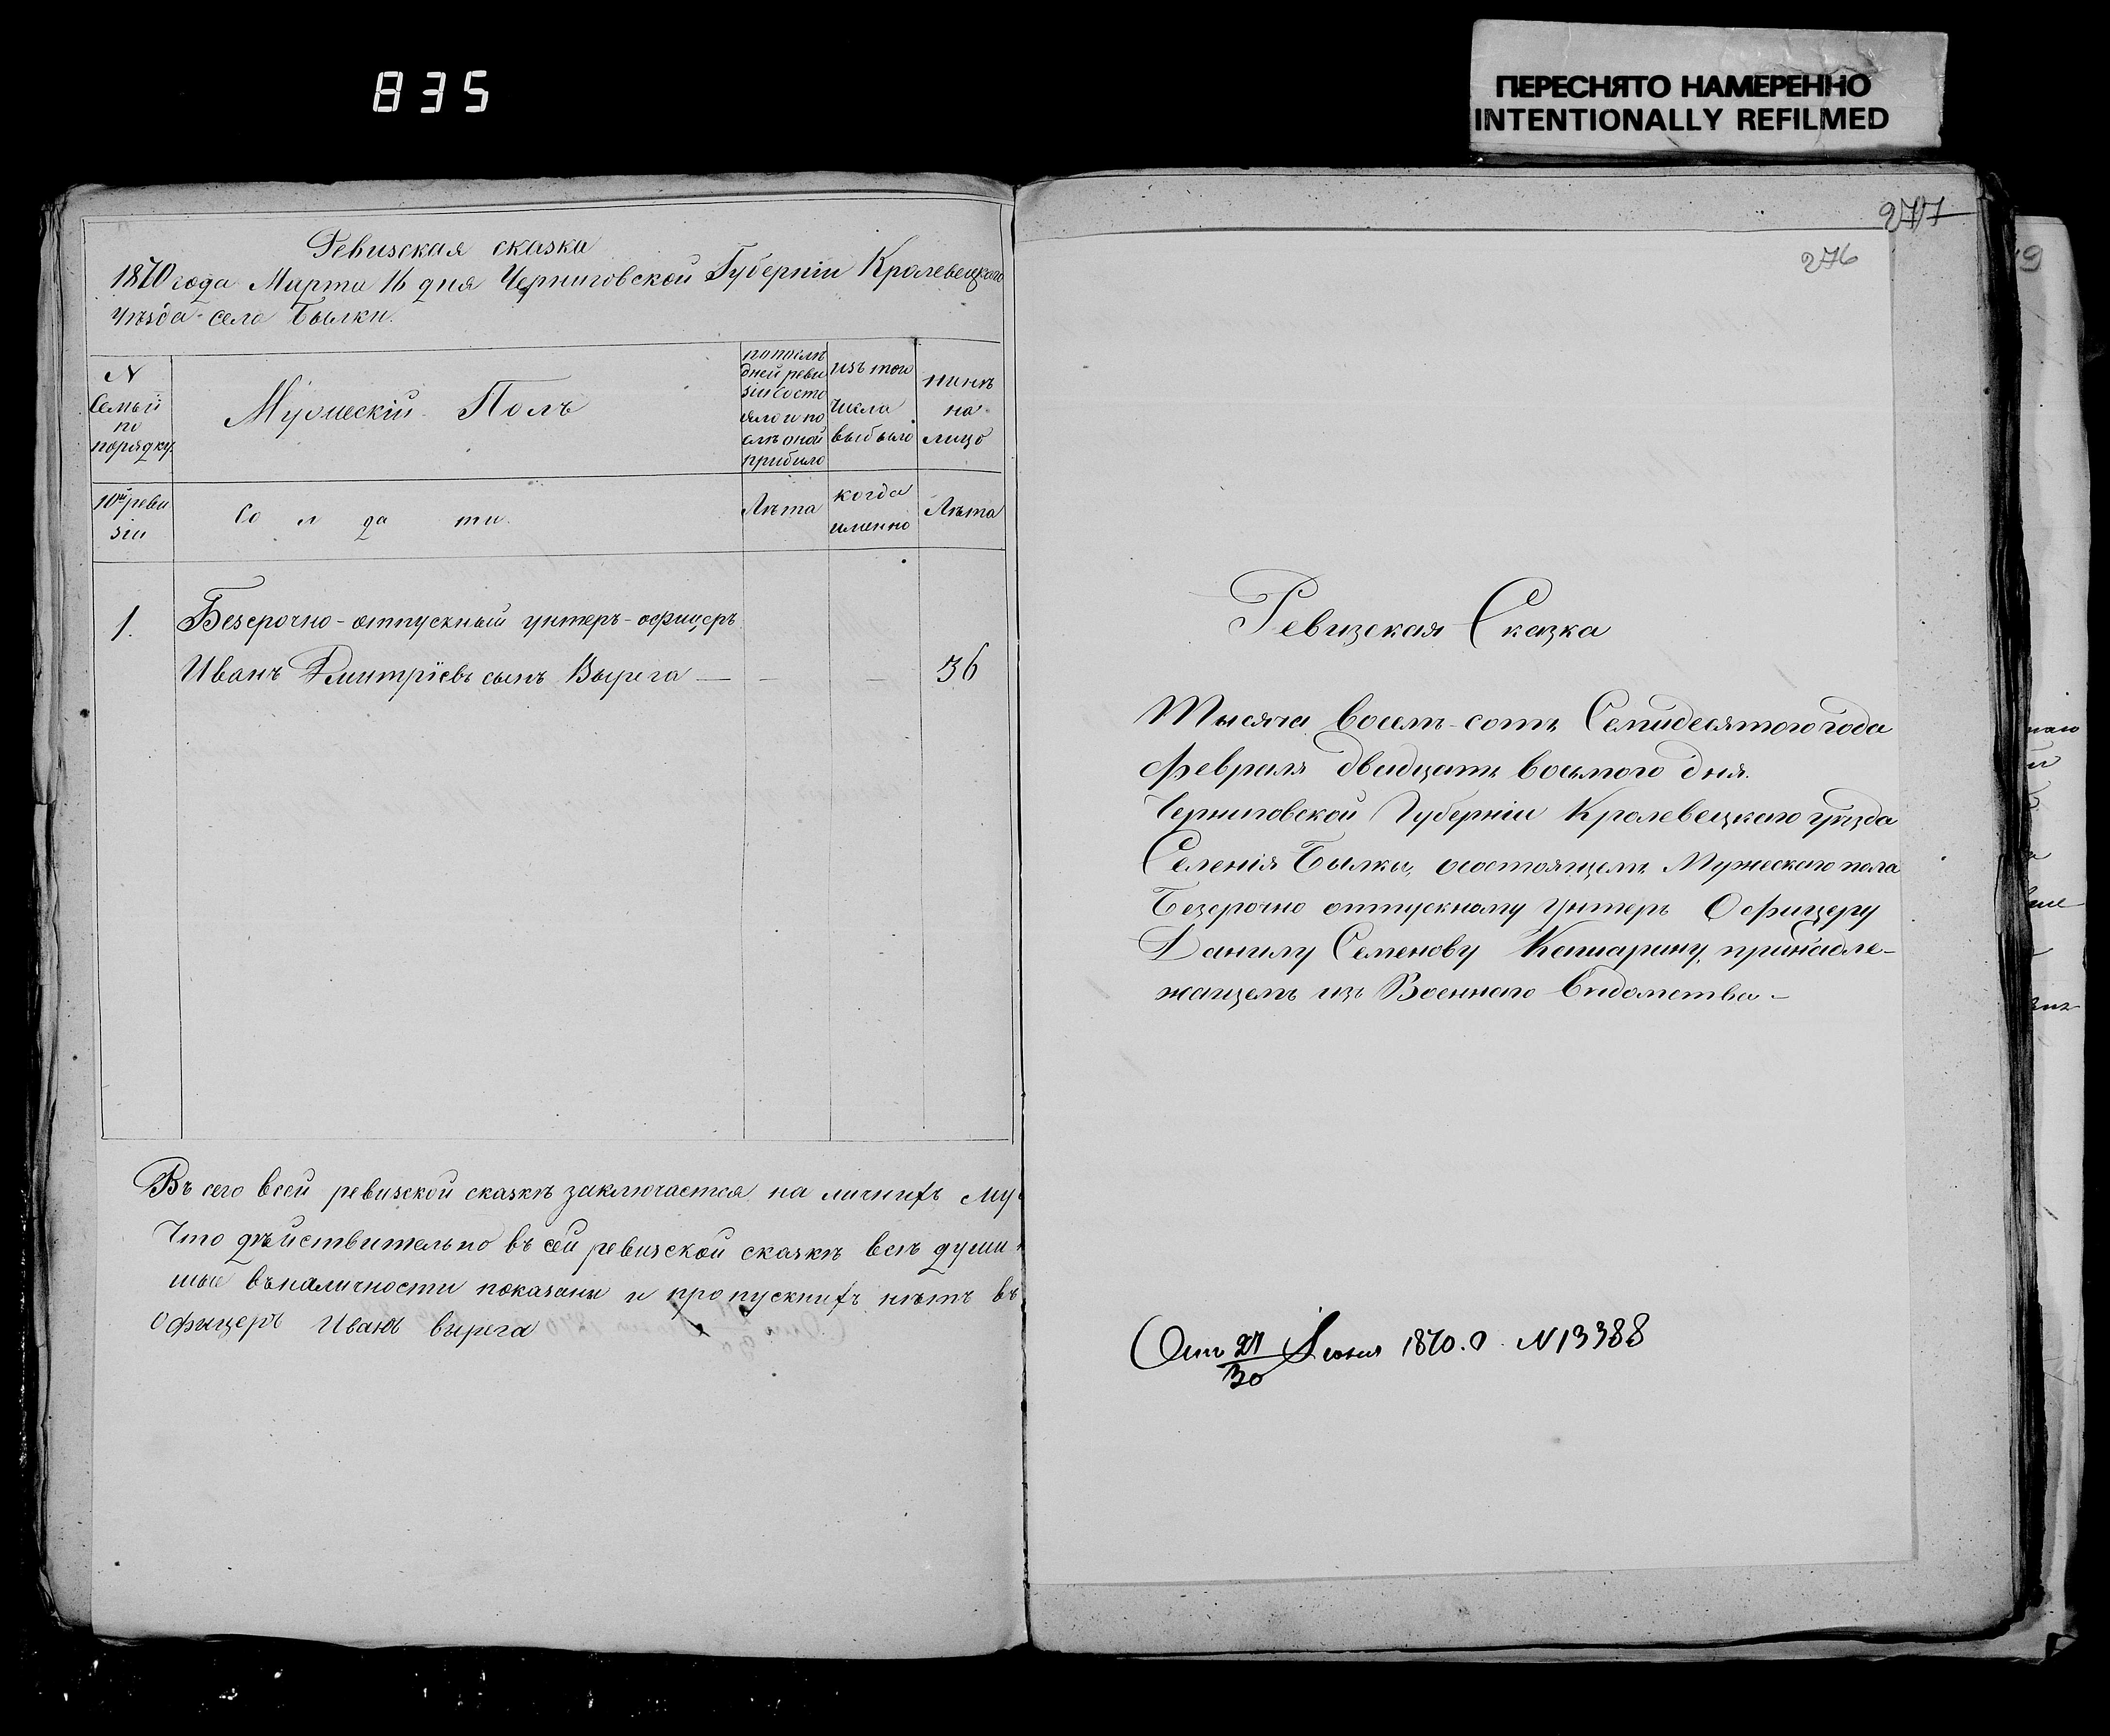 835
ПЕРЕСНЯТО НАМЕРЕННО
INTENTIONALLY REFILMED
Ревизская сказка
1870 года Марта 16 дня Черниговской Губерніи Кролевецкаго
уѣзда села Былки.
N Семьи по порядку.
Мужескій Полъ
по послѣдней ревизіи состояло и послѣ оной прибыло
изъ того числа выбыло
нынѣ на лицо
10й ревизіи
Солдаты.
Лѣта
когда именно
Лѣта
1.
Безсрочно-отпускный унтеръ-офицеръ
Иванъ Дмитріевъ сынъ Вырега — — — 36
Въ сего всей ревизской сказкѣ заключается на личныхъ му
Что дѣйствительно въ сей ревизской сказкѣ всѣ души
ные въ наличности показаны и пропускныхъ нѣтъ въ
офицеръ Иванъ вырега
277
276
Ревизская Сказка
Тысяча восемь-сотъ Семидесятого года
февраля двадцать восьмого дня.
Черниговской Губерніи Кролевецкаго уѣзда
Селенія Былки, осостоящемъ Мужескаго пола
Безсрочно отпускному Унтеръ Офицеру
Данилу Семенову Кашарину, принадле-
жащемъ изъ Военнаго Вѣдомства –
От 27/30 Іюня 1870. N 13388